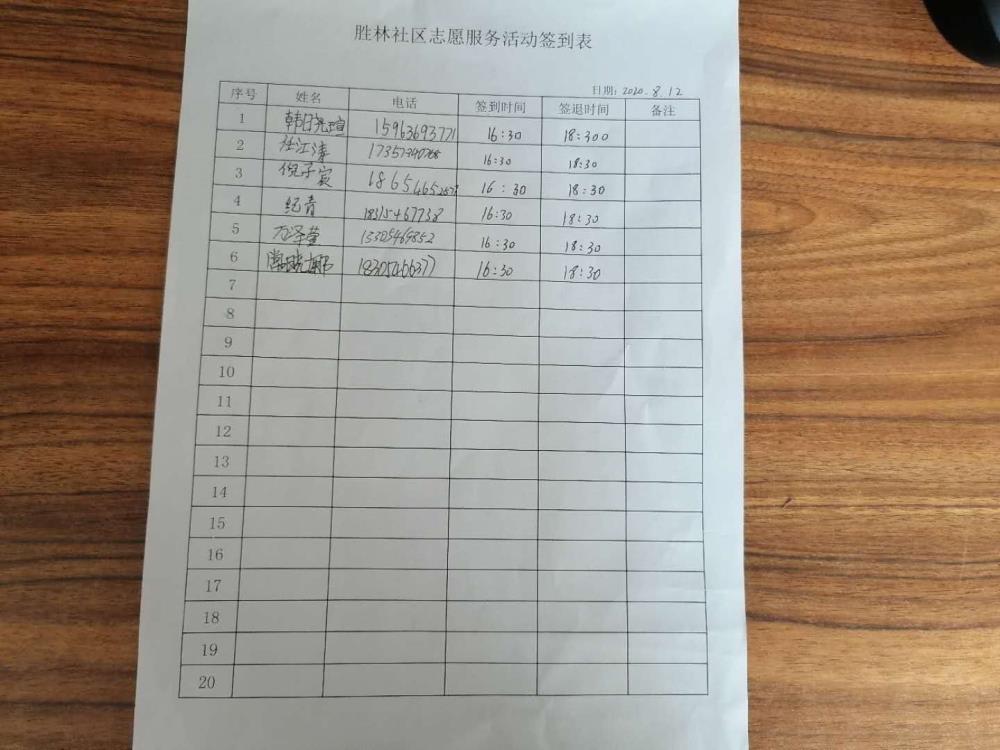 胜林社区志愿服务活动签到表
日期：2020.8.12
序号 姓名 电话 签到时间 签退时间 备注
1 韩晓瑄 15963693771 16:30 18:300
2 任江涛 16:30 18:30
3 倪子宸 16:30 18:30
4 纪青 18315467738 16:30 18:30
5 万泽莹 13305469852 16:30 18:30
6 18305466377 16:30 18:30
7
8
9
10
11
12
13
14
15
16
17
18
19
20